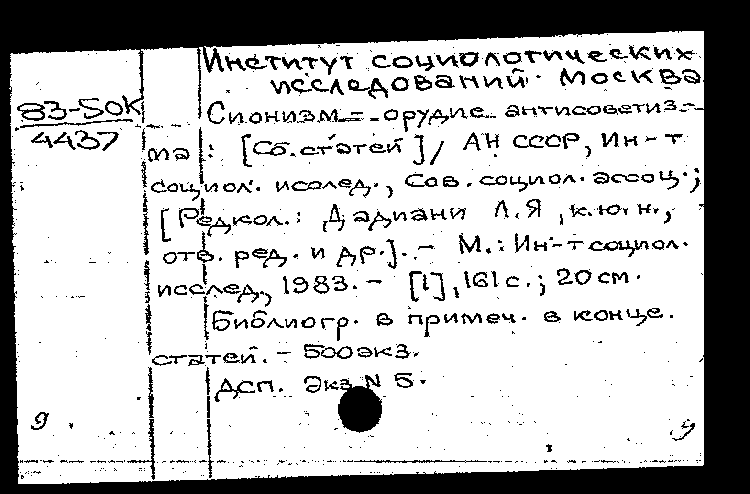 Институт социологических
исследований. Москва
83-50К
4437
Сионизм - орудие антисоветиз-
ма: [Сб. статей] / АН СССР, Ин-т
социол. исслед., Сов. социол. ассоц.;
[Редкол.: Дадиани Л.Я, к.ю.н.,
отв. ред. и др.]. - М.: Ин-т социол.
исслед., 1983. - [1], 161 с.; 20 см.
Библиогр. в примеч. в конце
статей. - 500 экз.
ДСП. Экз N 5.
9 9